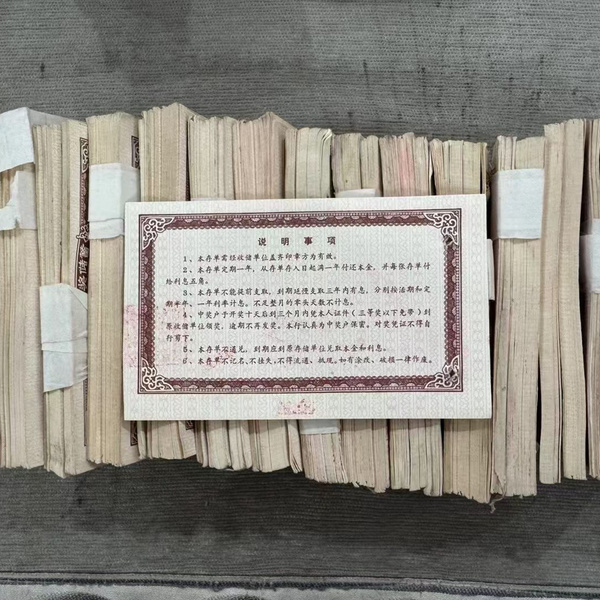 说明事项
1、本存单需经收储单位盖齐印章方为有效。
2、本存单定期一年,从存单存入日起满一年付还本金,并每张存单付
给利息五角。
3、本存单不能提前支取,到期延慢支取三年内有息,分别按活期和定
期半年、一年利率计息。不足整月的零头天数不计息。
4、中奖户于开奖十天后到三个月内凭本人证件(三等奖以下免带)到
原收储单位领奖,逾期不再发奖。本行认真为中奖户保密,对奖凭证不得自
行剪下。
5、本存单不通兑,到期应到原存储单位兑取本金和利息。
6、本存单不记名、不挂失,不得流通、抵现。如有涂改、破损一律作废。